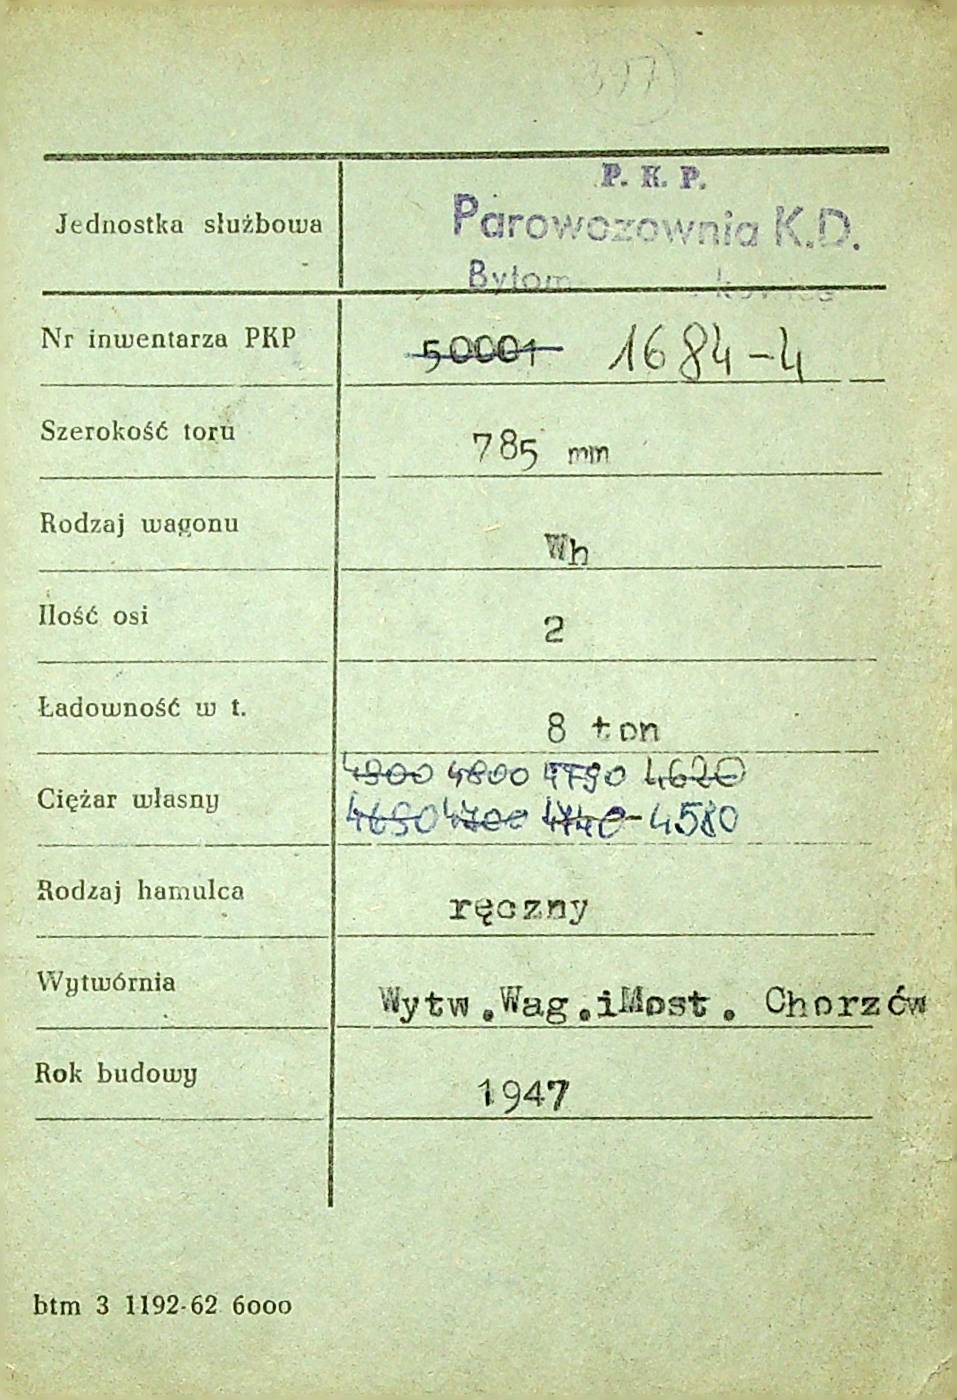 P. K. P.
Jednostka służbowa Parowozownia K.D.
Bytom
Nr inwentarza PKP 50001 1684-4
Szerokość toru 785 mm
Rodzaj wagonu Wh
Ilość osi 2
Ładowność w t. 8 ton
4900 4800 4790 4620
Ciężar własny 4690 4700 4740 4580
Rodzaj hamulca ręczny
Wytwórnia Wytw.Wag.iMost. Chorzów
Rok budowy 1947
btm 3 1192-62 6000